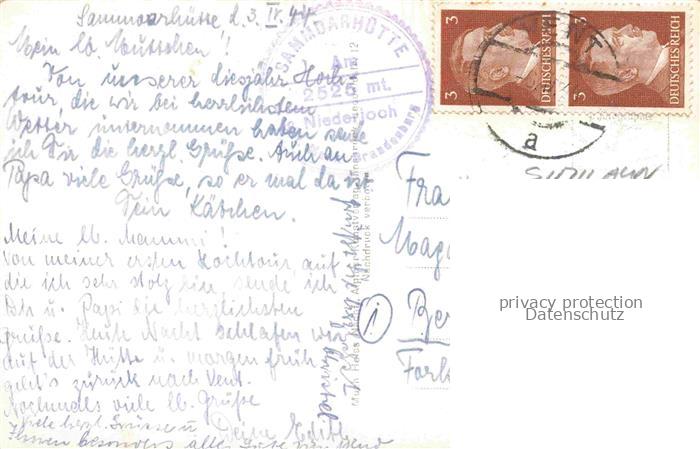 Sammoarhütte d. 3. IV. 44
Mein lb. Muttchen!
Von unserer diesjähr. Hoch-
tour, die wir bei herrlichstem
Wetter unternommen haben sende
ich Dir die herzl. Grüße. Auch an
Papa viele Grüße, so er mal da ist
Dein Kätchen.
Meine lb. Mammi!
Von meiner ersten Hochtour, auf
die ich sehr stolz bin, sende ich
Dir u. Papi die herzlichsten
Grüße. Heute Nacht schlafen wir
auf der Hütte u. morgen früh
geht's zurück nach Vent.
Nochmals viele lb. Grüße
Deine Edith
Viele herzl. Grüsse u.
Ihnen besonders alles Gute
SAMMOARHÜTTE
2525 mt.
Niederjoch
Brandenburg
Nachdruck verboten
3
DEUTSCHES REICH
3
DEUTSCHES REICH
VENT
a
Fra
Mag
Be
privacy protection
Datenschutz